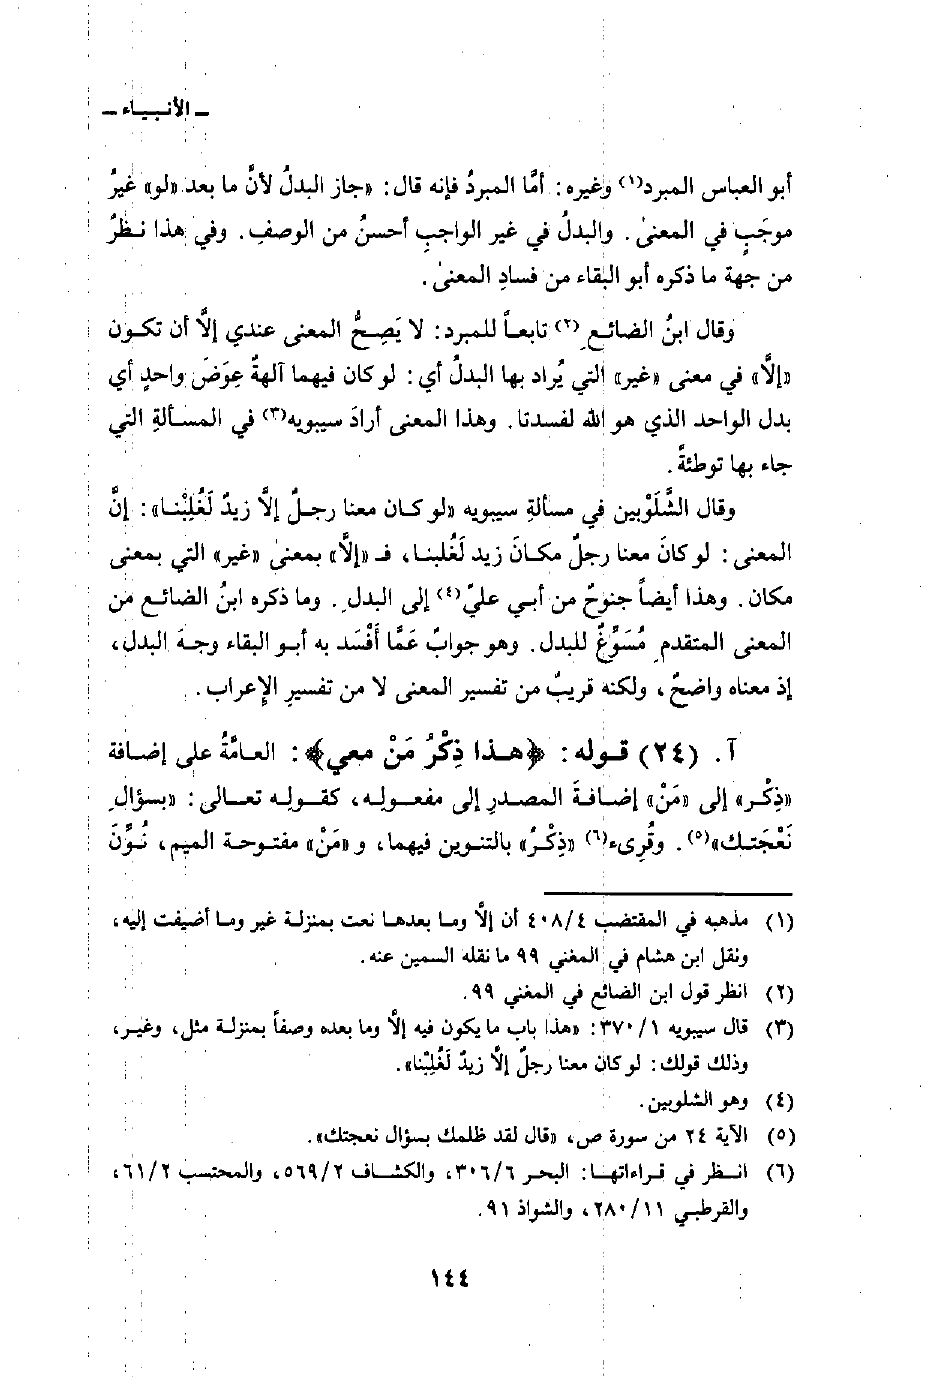 ـ الأنبياء ـ
أبو العباس المبرد(١) وغيره: أمَّا المبردُ فإنه قال: «جاز البدلُ لأنَّ ما بعد «لو» غيرُ
موجَبٍ في المعنىٰ. والبدلُ في غير الواجبِ أحسنُ من الوصفِ. وفي هذا نظرٌ
من جهة ما ذكره أبو البقاء من فسادِ المعنىٰ.
وقال ابنُ الضائع(٢) تابعاً للمبرد: لا يَصِحُّ المعنى عندي إلَّا أن تكون
«إلَّا» في معنى «غير» التي يُراد بها البدلُ أي: لو كان فيهما آلهةٌ عِوَضَ واحدٍ أي
بدل الواحد الذي هو الله لفسدتا. وهذا المعنى أرادَ سيبويه(٣) في المسألةِ التي
جاء بها توطئةً.
وقال الشَّلَوْبين في مسألةِ سيبويه «لو كان معنا رجلٌ إلَّا زيدٌ لَغُلِبْنا»: إنَّ
المعنى: لو كانَ معنا رجلٌ مكانَ زيد لَغُلبنا، فـ «إلَّا» بمعنىٰ «غير» التي بمعنى
مكان. وهذا أيضاً جنوحٌ من أبي عليّ(٤) إلى البدلِ. وما ذكره ابنُ الضائع من
المعنى المتقدمِ مُسَوِّغٌ للبدل. وهو جوابٌ عَمَّا أَفْسَد به أبو البقاء وجهَ البدل،
إذ معناه واضحٌ، ولكنه قريبٌ من تفسير المعنى لا من تفسيرِ الإِعراب.
آ. (٢٤) قوله: ﴿هذا ذِكْرُ مَنْ معي﴾: العامَّةُ على إضافة
«ذِكْر» إلى «مَنْ» إضافةَ المصدرِ إلى مفعولِه، كقولِه تعالى: «بسؤالِ
نَعْجَتك»(٥). وقُرِىء(٦) «ذِكْرٌ» بالتنوين فيهما، و «مَنْ» مفتوحة الميم، نُوِّنَ
(١) مذهبه في المقتضب ٤٠٨/٤ أن إلَّا وما بعدها نعت بمنزلة غير وما أضيفت إليه،
ونقل ابن هشام في المغني ٩٩ ما نقله السمين عنه.
(٢) انظر قول ابن الضائع في المغني ٩٩.
(٣) قال سيبويه ٣٧٠/١: «هذا باب ما يكون فيه إلَّا وما بعده وصفاً بمنزلة مثل، وغير،
وذلك قولك: لو كان معنا رجلٌ إلَّا زيدٌ لَغُلِبْنا».
(٤) وهو الشلوبين.
(٥) الآية ٢٤ من سورة ص، «قال لقد ظلمك بسؤال نعجتك».
(٦) انظر في قراءاتها: البحر ٣٠٦/٦، والكشاف ٥٦٩/٢، والمحتسب ٦١/٢،
والقرطبي ٢٨٠/١١، والشواذ ٩١.
١٤٤